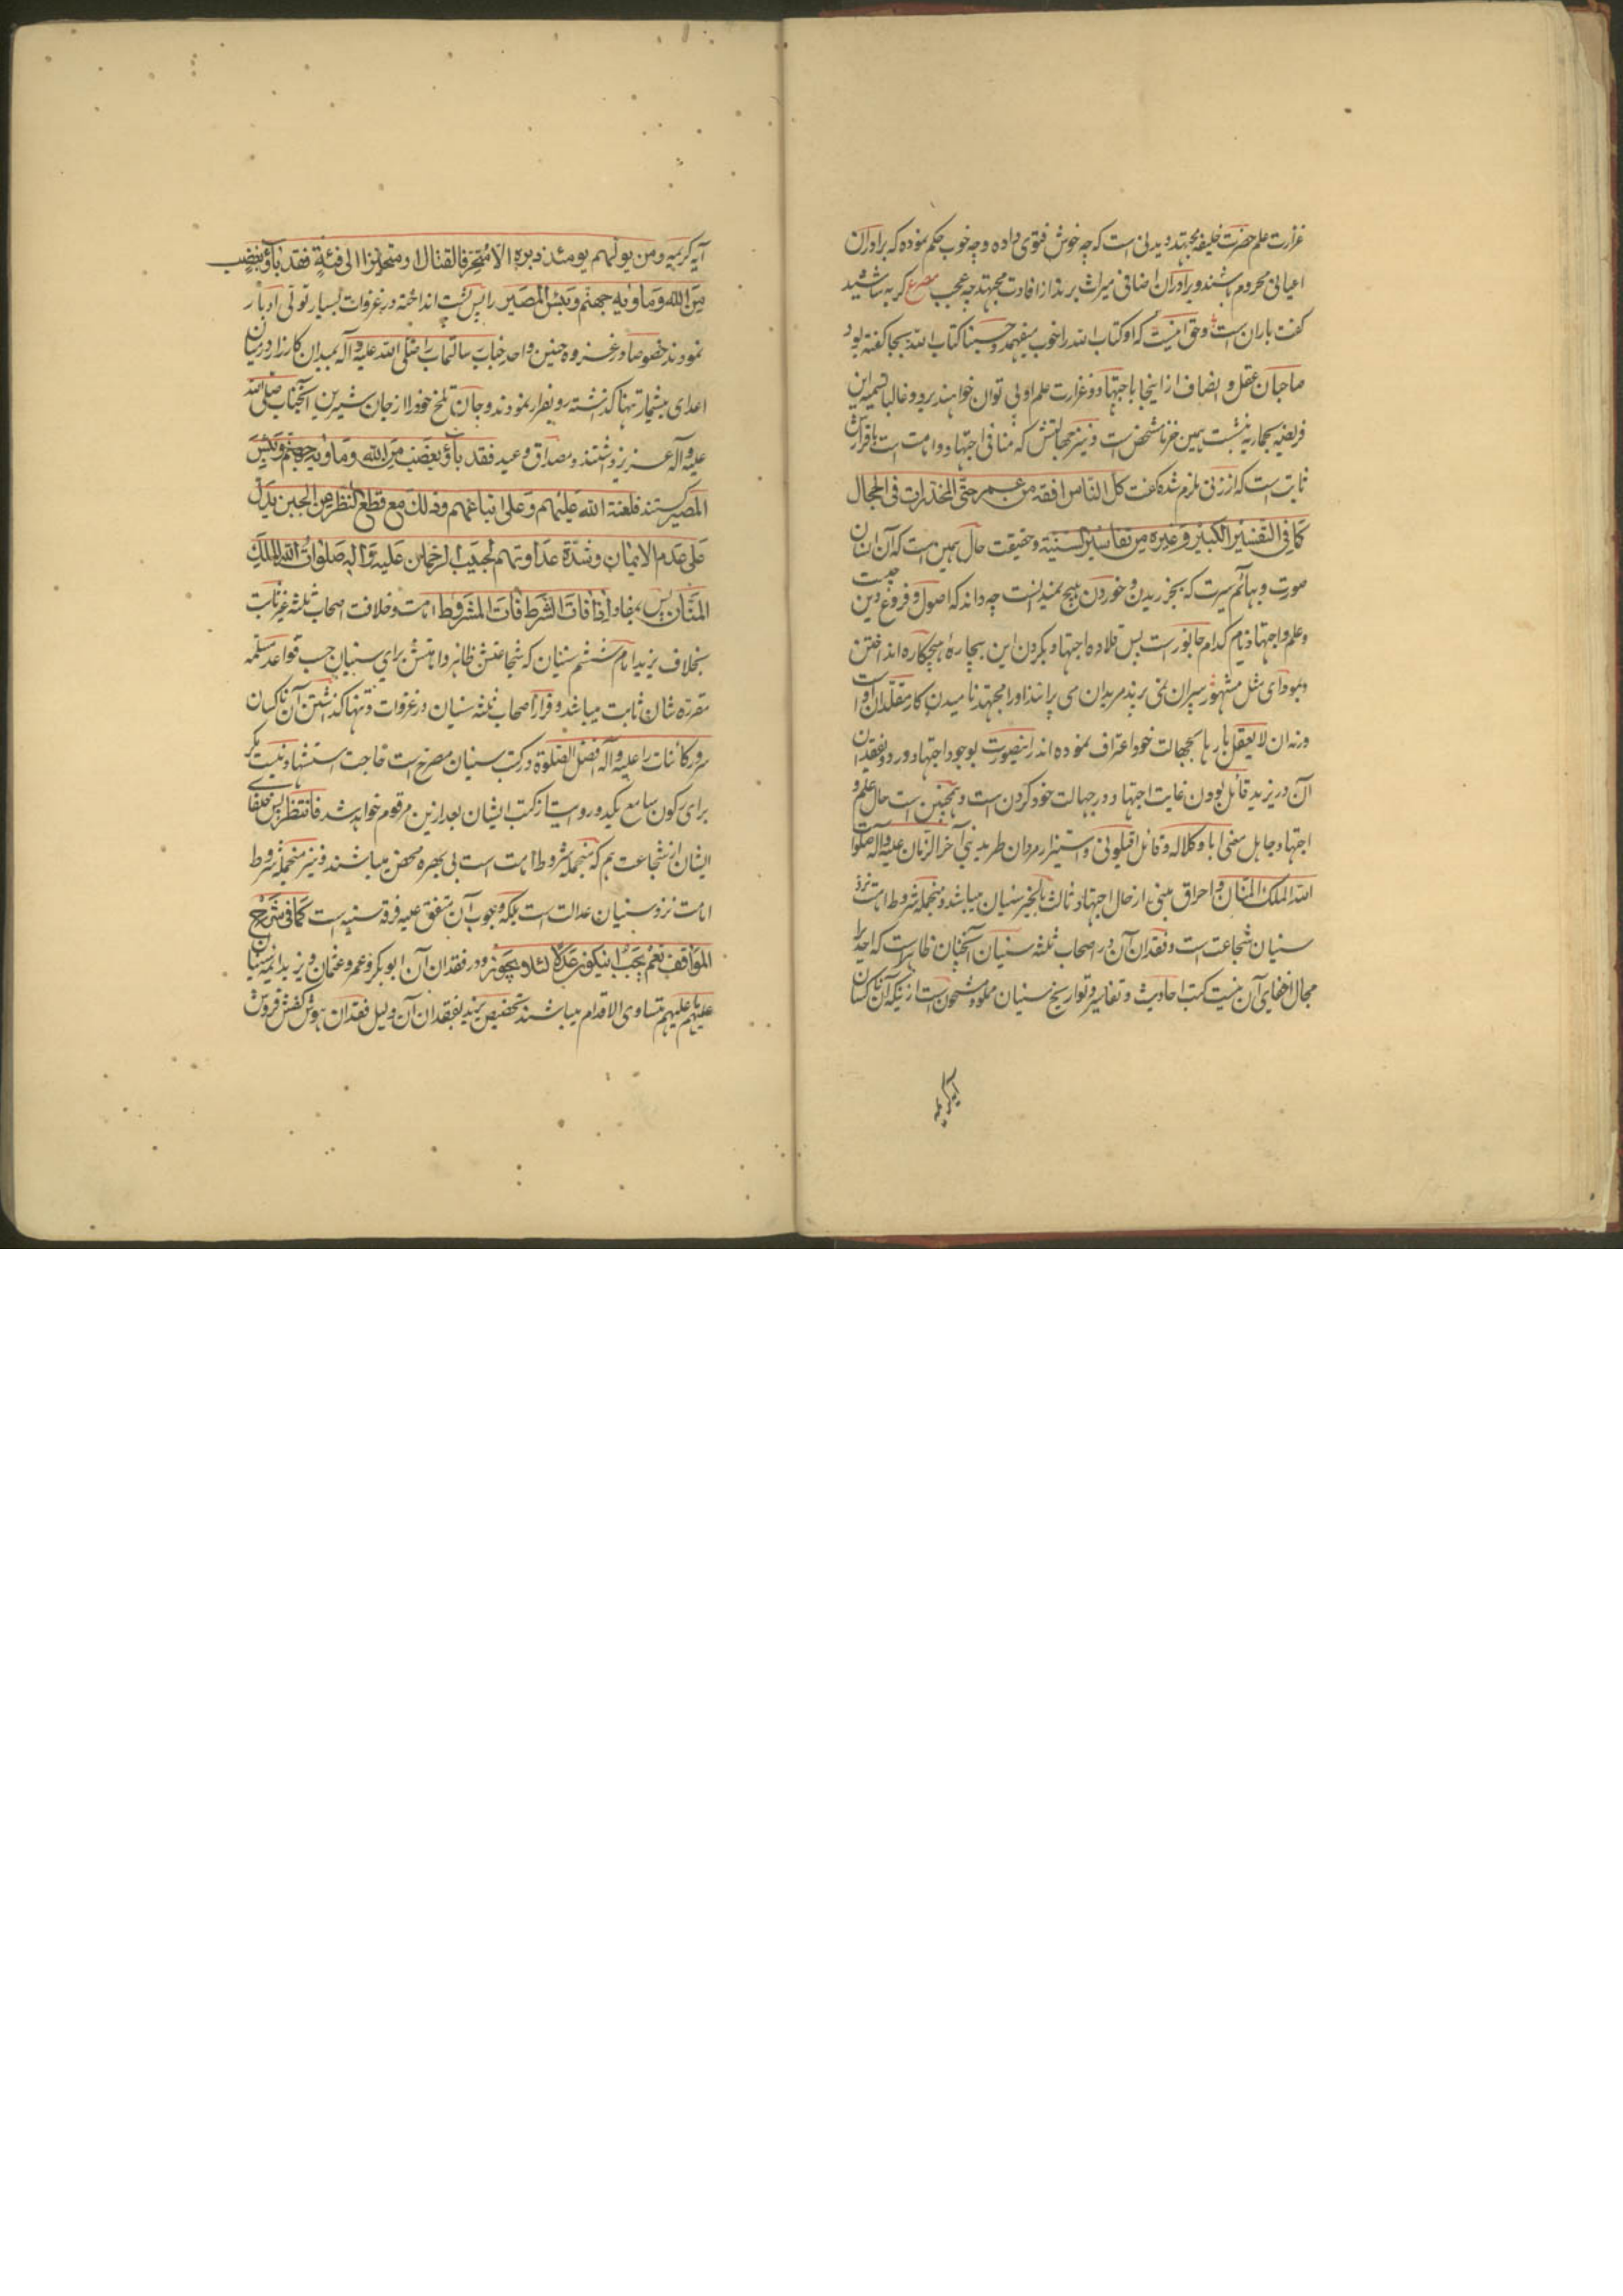 غزارت علم حضرت خلیفه مجتهد دیدنی است که چه خوش فتوی داده و چه خوب حکم نموده که برادران
اعیانی محروم باشند و برادران اضافی میراث برند از افادت مجتهد چه عجب مصرع گربه شاشید
گفت باران است و حق اینست که او کتاب الله را خوب میفهمد و حسبنا کتاب الله بجا گفته بود
صاحبان عقل و انصاف از اینجا با جتهاد و غزارت علم او پی توان خواهند برد و غالبا تسمیه این
فریضه بحماریه نسبت بهمین خر ناشخص است و نیز جهالتش که منافی اجتهاد و امامت است باقرارش
ثابت است که از زنی ملزم شده گفت كل الناس افقه من عمر حتی المخدرات فی الحجال
كما فی التفسیر الكبیر و غیره من تفاسیر السنیة و حقیقت حال همین است که آن انسان
صورت و بهائم سیرت که بجز ریدن و خوردن هیچ نمیدانست چه داند که اصول و فروع دین چیست
و علم و اجتهاد نام کدام جانور است پس قلاده اجتهاد بگردن این بیچارهٔ هیچکاره انداختن
و بمودای مثل مشهور پیران نمی پرند مریدان می پرانند او را مجتهد نامیدن کار مقلدان اوست
ورنه ان لا یعقل بارها بجهالت خود اعتراف نموده اند درینصورت بوجود اجتهاد در دو بفقدان
آن در یزید قائل بودن غایت اجتهاد در جهالت خود کردن است و همچنین است حال علم و
اجتهاد جاهل معنی ابا و کلاله و قائل اقیلونی و استیزار مردان طرید نبی آخر الزمان علیه و اله صلوات
الله الملک المنان و احراق مبنی از حال اجتهاد ثالث بالخیر سنیان میباشد و منجمله شروط امامت نزد
سنیان شجاعت است و فقدان آن در اصحاب ثلثه سنیان آنچنان ظاهر است که احدیرا
مجال اخفای آن نیست کتب احادیث و تفاسیر و تواریخ سنیان مملو و مشحون است از اینکه آن ناکسان
آیه کریمه
آیه کریمه و من یولهم یومئذ دبره الا متحرفا لقتال او متحیزا الی فئة فقد باؤ بغضب
من الله و ماویه جهنم و بئس المصیر را پس پشت انداخته در غزوات بسیار تولی ادبار
نمودند خصوصا در غزوه حنین و احد جناب رسالتماب را صلی الله علیه و آله بمیدان کارزار در میان
اعدای بیشمار تنها گذشته رو بفرار نمودند و جان تلخ خود را از جان شیرین آنجناب صلی الله
علیه و آله عزیز داشتند و مصداق وعید فقد باؤ بغضب من الله و ماویه جهنم و بئس
المصیر گشتند فلعنة الله علیهم و علی اتباعهم و ذلك مع قطع النظر من الجبن یدل
علی عدم الایمان و شدة عداوتهم لحبیب الرحمان علیه و اله صلوات الله الملك
المنان پس بمفاد اذا فات الشرط فات المشروط امامت و خلافت اصحاب ثلثه غیر ثابت
بخلاف یزید امام ششم سنیان که شجاعتش ظاهر و امامتش برای سنیان حسب قواعد مسلمه
مقرره شان ثابت میباشد و فرار اصحاب ثلثه سنیان در غزوات و تنها گذشتن آن ناکسان
سرور کائنات را علیه و آله افضل الصلوة در کتب سنیان مصرح است حاجت استشهاد نیست مگر
برای رکون سامع یکدو روایت از کتب ایشان بعد ازین مرقوم خواهد شد فانتظر پس خلفای
ایشان از شجاعت هم که منجمله شروط امامت است بی بهره محض میباشند و نیز منجمله شروط
امامت نزد سنیان عدالت است بلکه وجوب آن متفق علیه فرقه سنیه است كما فی شرح
المواقف نعم یجب ان یكون عدلا لئلا یجور و در فقدان آن ابو بکر و عمر و عثمان و یزید ائمه سنیان
علیهم ما علیهم متساوی الاقدام میباشند تخصیص یزید بفقدان آن دلیل فقدان هوش کفش فروش